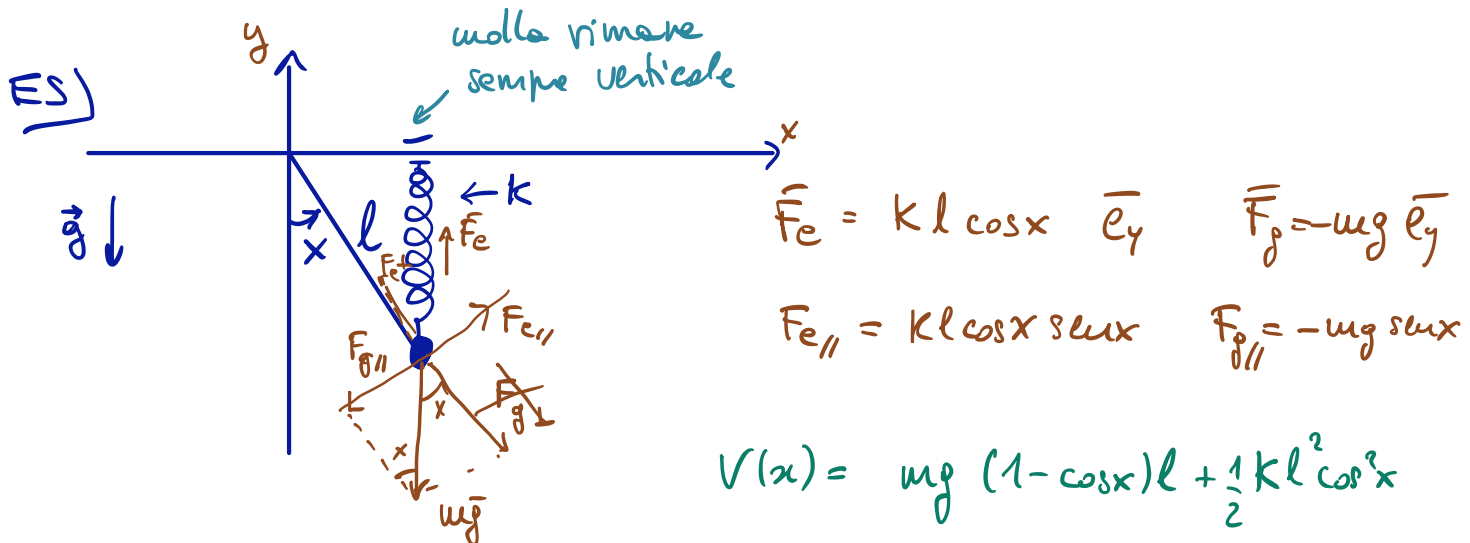 ES)
y
molla rimane
sempre verticale
x
g⃗
x
l
← K
F̄e
Fe⊥
Fe//
Fg//
Fg⊥
x
x
mḡ
F̄e = K l cos x ēy
F̄g = -mg ēy
Fe// = K l cos x sen x
Fg// = -mg sen x
V(x) = mg (1 - cos x) l + 1/2 K l² cos² x